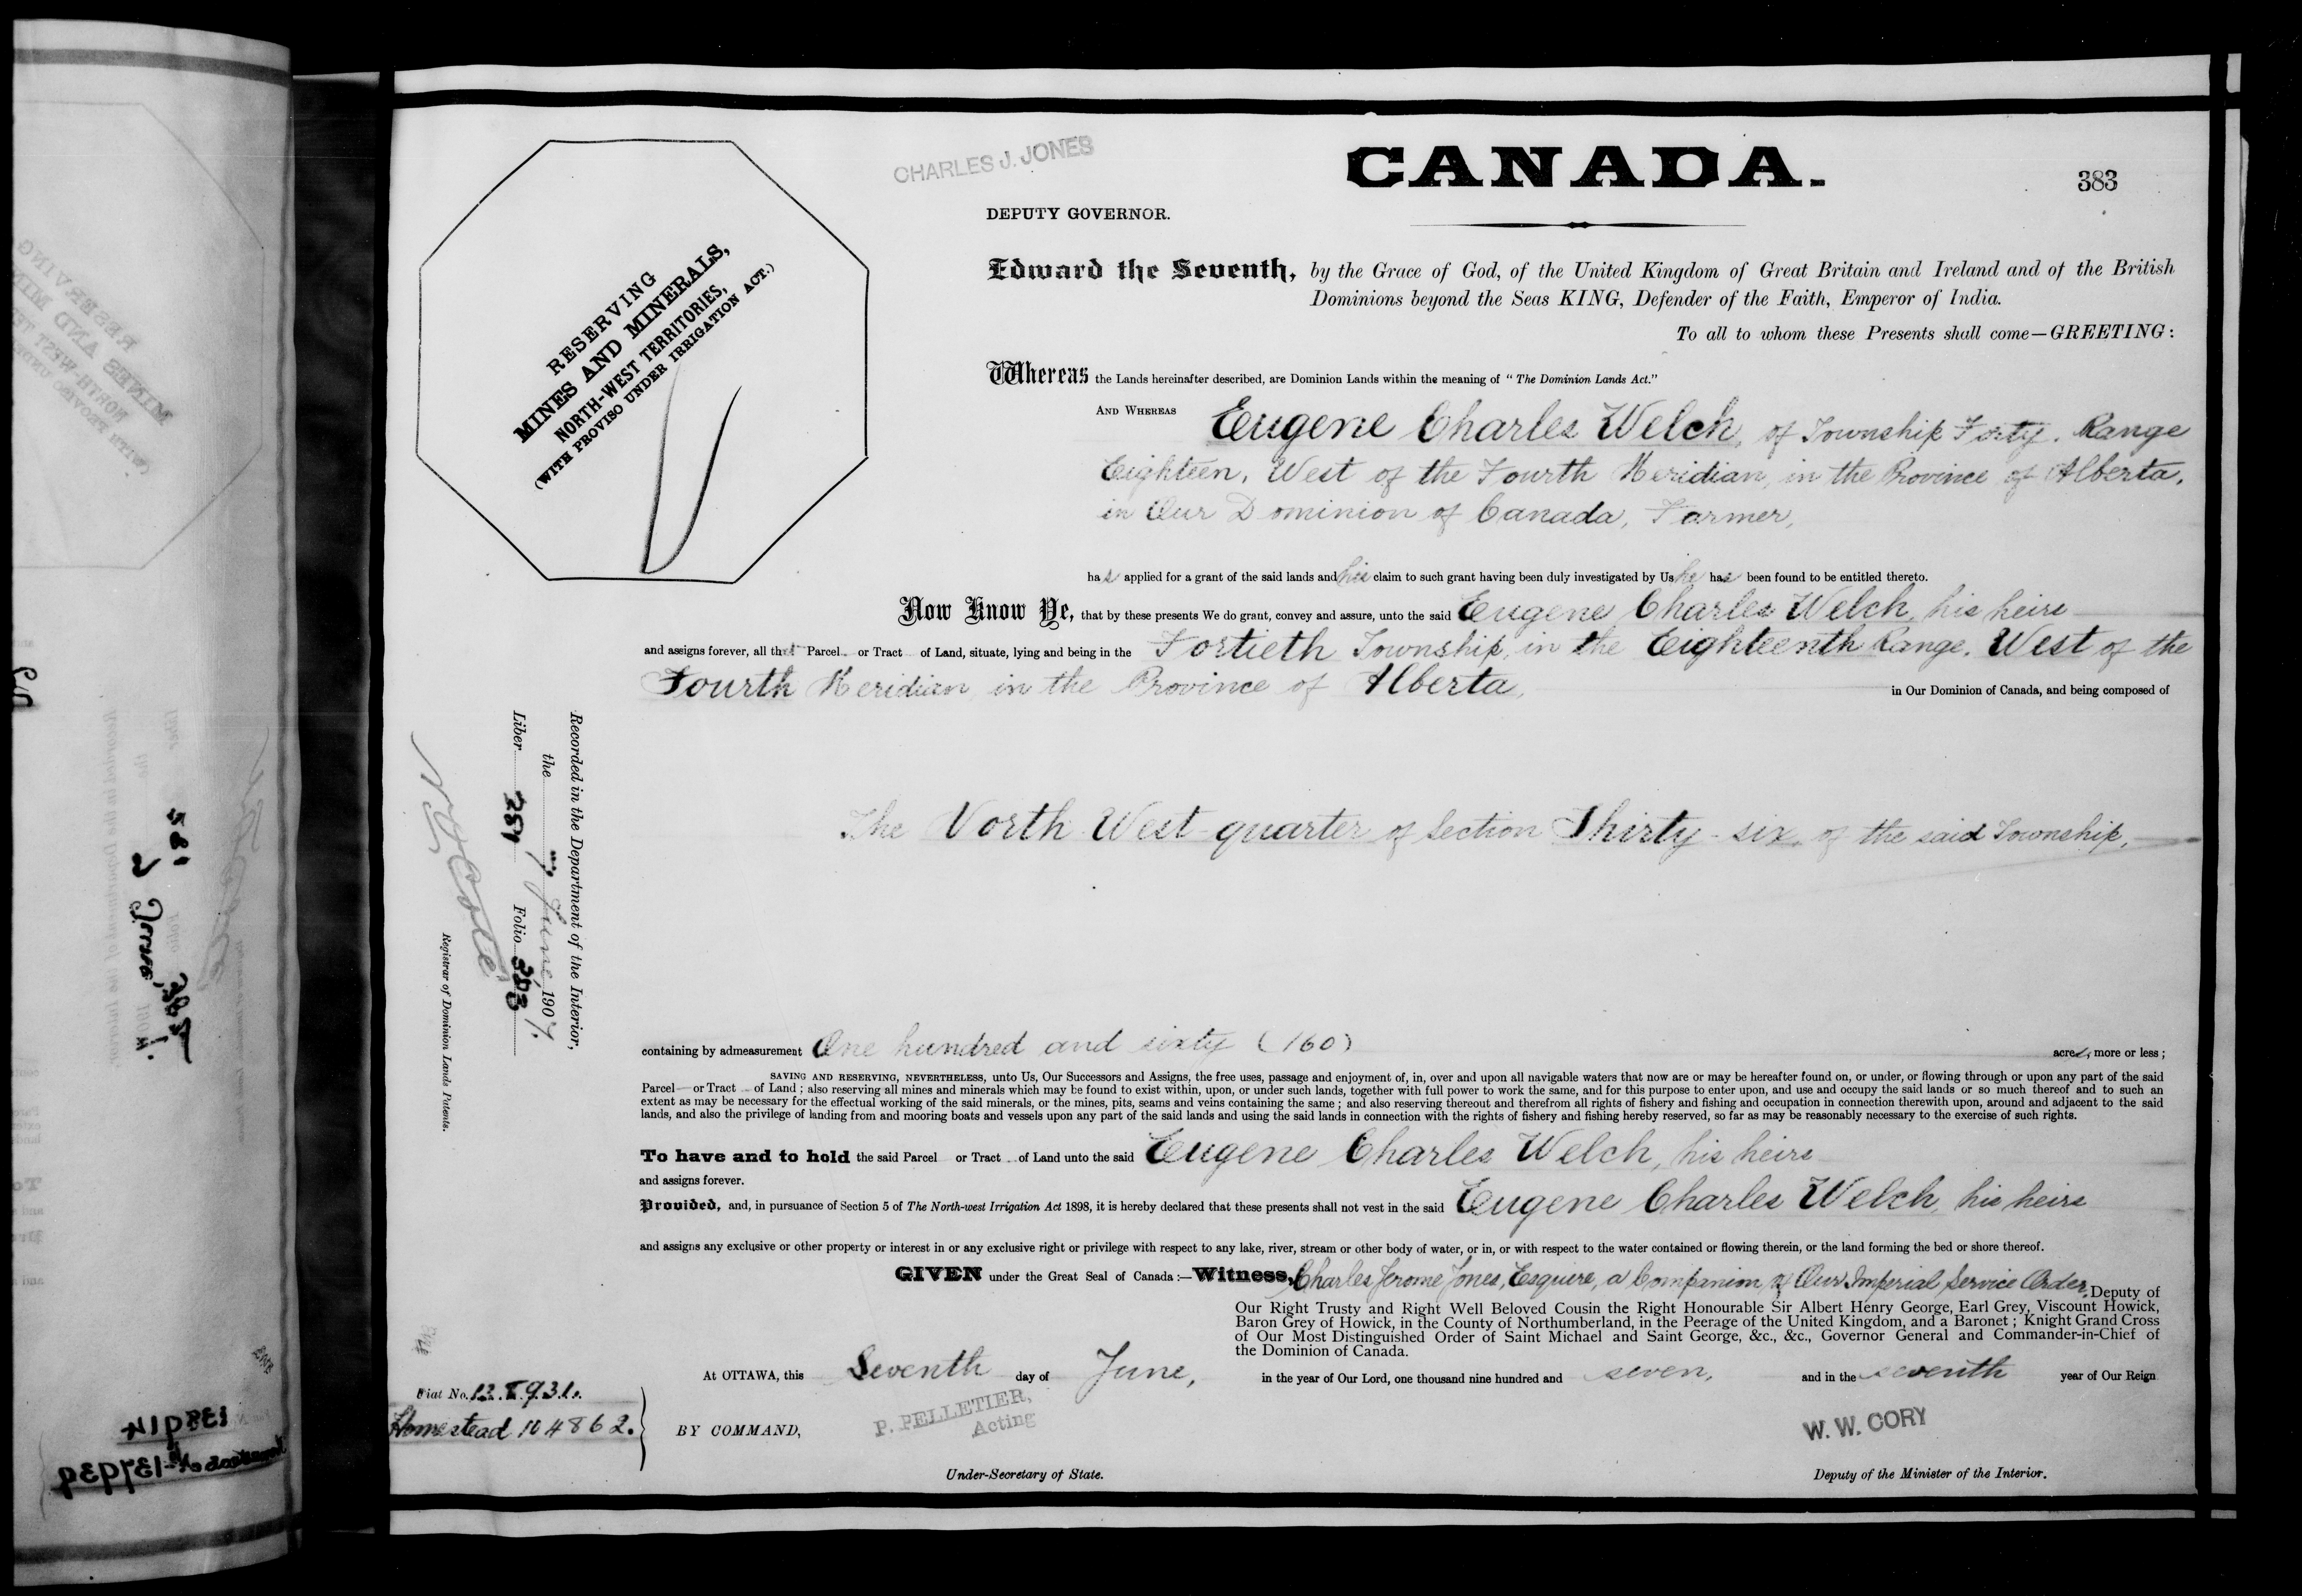 CHARLES J. JONES
CANADA.
383
DEPUTY GOVERNOR.
RESERVING
MINES AND MINERALS,
NORTH-WEST TERRITORIES,
(WITH PROVISO UNDER IRRIGATION ACT.)
Edward the Seventh, by the Grace of God, of the United Kingdom of Great Britain and Ireland and of the British
Dominions beyond the Seas KING, Defender of the Faith, Emperor of India.
To all to whom these Presents shall come—GREETING:
Whereas the Lands hereinafter described, are Dominion Lands within the meaning of "The Dominion Lands Act."
AND WHEREAS Eugene Charles Welch, of Township Forty, Range
Eighteen, West of the Fourth Meridian, in the Province of Alberta,
in Our Dominion of Canada, Farmer,
has applied for a grant of the said lands and his claim to such grant having been duly investigated by Us he has been found to be entitled thereto.
Now Know Ye, that by these presents We do grant, convey and assure, unto the said Eugene Charles Welch, his heirs
and assigns forever, all that Parcel or Tract of Land, situate, lying and being in the Fortieth Township, in the Eighteenth Range, West of the
Fourth Meridian, in the Province of Alberta, in Our Dominion of Canada, and being composed of
The North West quarter of Section Thirty-six, of the said Township,
Recorded in the Department of the Interior,
the 7th June, 1907.
Liber 251 Folio 383
Registrar of Dominion Lands Patents.
containing by admeasurement One hundred and sixty (160) acres, more or less;
SAVING AND RESERVING, NEVERTHELESS, unto Us, Our Successors and Assigns, the free uses, passage and enjoyment of, in, over and upon all navigable waters that now are or may be hereafter found on, or under, or flowing through or upon any part of the said
Parcel or Tract of Land; also reserving all mines and minerals which may be found to exist within, upon, or under such lands, together with full power to work the same, and for this purpose to enter upon, and use and occupy the said lands or so much thereof and to such an
extent as may be necessary for the effectual working of the said minerals, or the mines, pits, seams and veins containing the same; and also reserving thereout and therefrom all rights of fishery and fishing and occupation in connection therewith upon, around and adjacent to the said
lands, and also the privilege of landing from and mooring boats and vessels upon any part of the said lands and using the said lands in connection with the rights of fishery and fishing hereby reserved, so far as may be reasonably necessary to the exercise of such rights.
To have and to hold the said Parcel or Tract of Land unto the said Eugene Charles Welch, his heirs
and assigns forever.
Provided, and, in pursuance of Section 5 of The North-west Irrigation Act 1898, it is hereby declared that these presents shall not vest in the said Eugene Charles Welch, his heirs
and assigns any exclusive or other property or interest in or any exclusive right or privilege with respect to any lake, river, stream or other body of water, or in, or with respect to the water contained or flowing therein, or the land forming the bed or shore thereof.
GIVEN under the Great Seal of Canada:—Witness, Charles Jerome Jones, Esquire, a Companion of Our Imperial Service Order, Deputy of
Our Right Trusty and Right Well Beloved Cousin the Right Honourable Sir Albert Henry George, Earl Grey, Viscount Howick,
Baron Grey of Howick, in the County of Northumberland, in the Peerage of the United Kingdom, and a Baronet; Knight Grand Cross
of Our Most Distinguished Order of Saint Michael and Saint George, &c., &c., Governor General and Commander-in-Chief of
the Dominion of Canada.
At OTTAWA, this Seventh day of June, in the year of Our Lord, one thousand nine hundred and seven, and in the seventh year of Our Reign
Fiat No.
Homestead 104862.
BY COMMAND,
P. PELLETIER,
Acting
W. W. CORY
Under-Secretary of State.
Deputy of the Minister of the Interior.